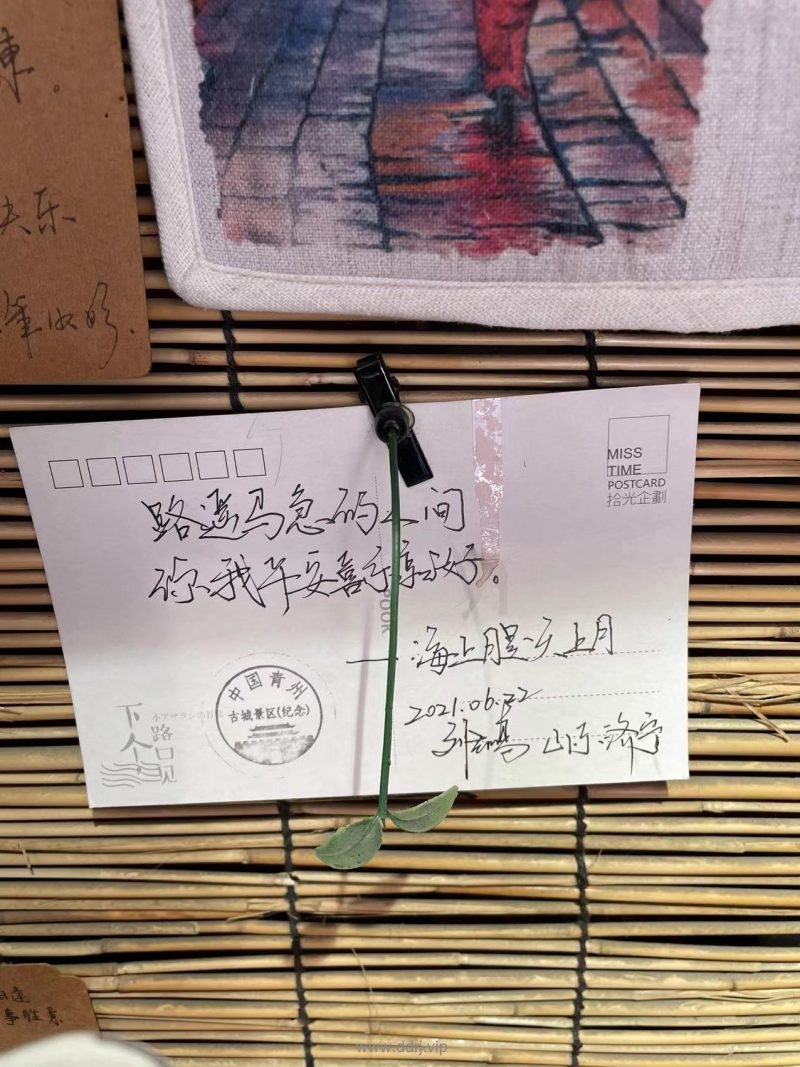 快乐
MISS
TIME
POSTCARD
拾光企劃
路遥马急的人间
你我平安喜乐就好。
——海上月是天上月
2021.06.22
山东.济宁
中国青州
古城景区(纪念)
下个
路口见
事胜意
www.ddrj.vip